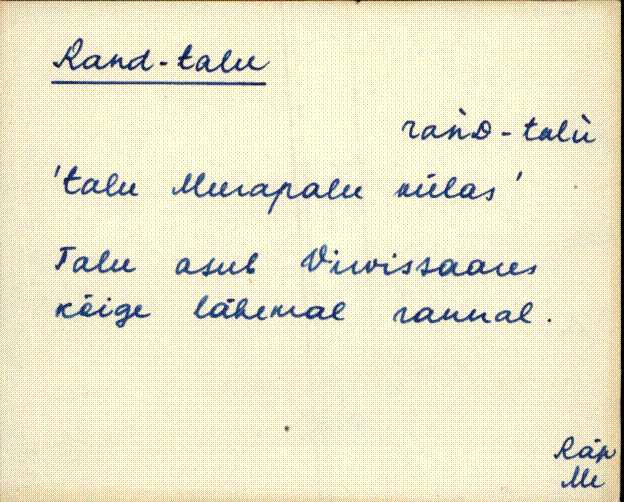 Rand-talu
ràǹD-talù
'talu Meerapalu külas'
Talu asub Virvissaares
kõige lähemal rannal.
Räp
Me